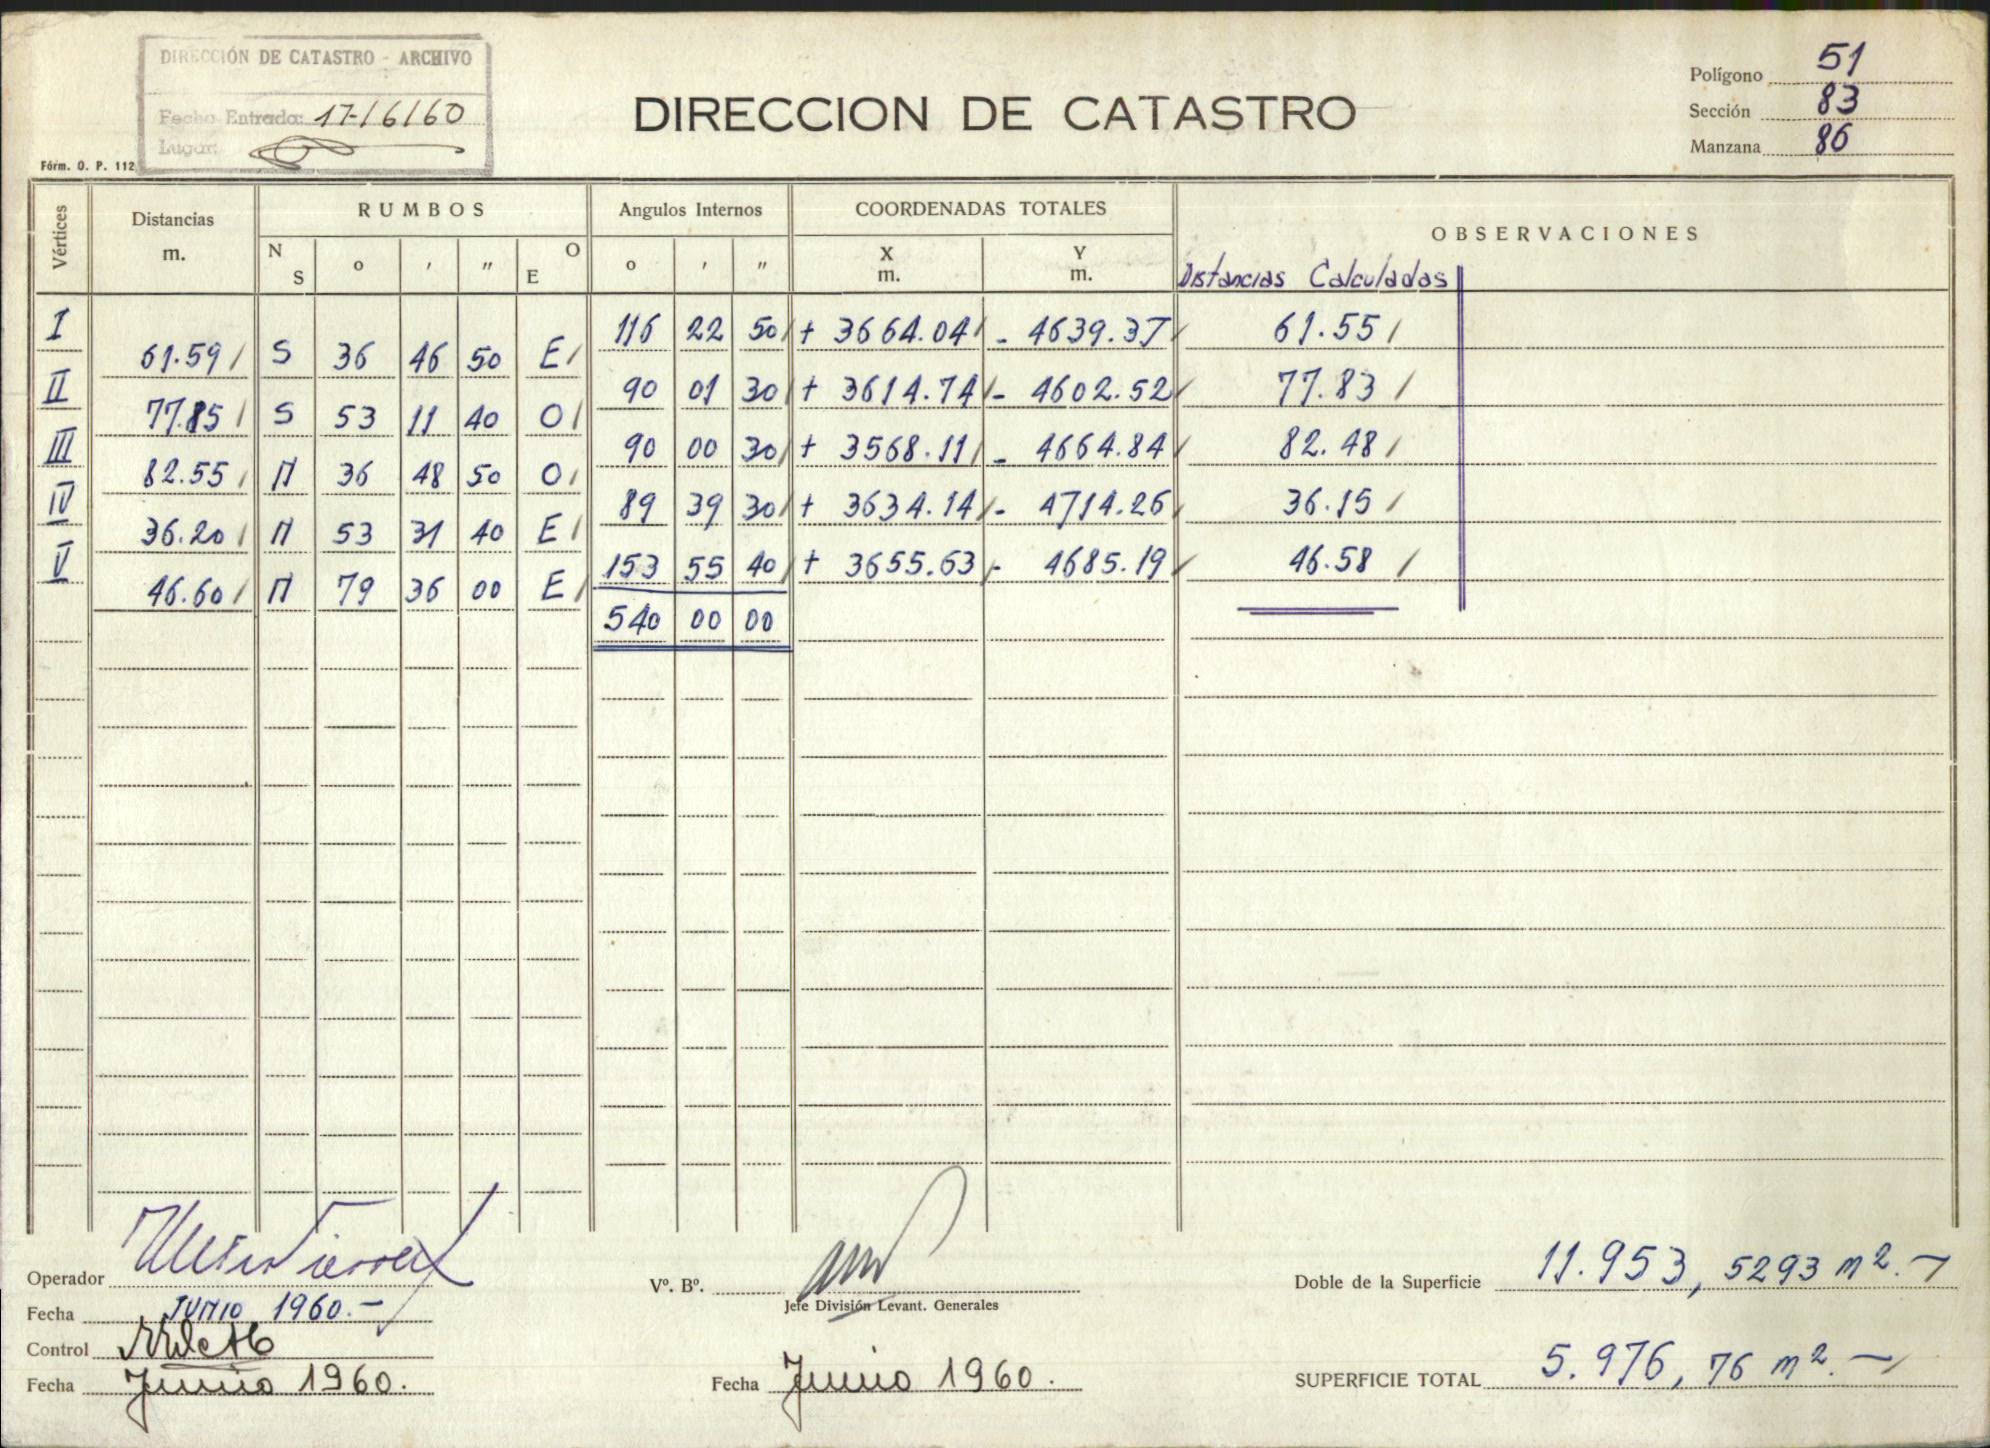 DIRECCIÓN DE CATASTRO - ARCHIVO
Fecha Entrada: 17/6/60
Lugar:
Fórm. O. P. 112
DIRECCION DE CATASTRO
Polígono 51
Sección 83
Manzana 86
Vértices Distancias m. RUMBOS Angulos Internos COORDENADAS TOTALES OBSERVACIONES
N S o ' " E O o ' " X m. Y m. Distancias Calculadas
I 116 22 50 + 3664.04 - 4639.37 61.55
61.59 S 36 46 50 E
II 90 01 30 + 3614.74 - 4602.52 77.83
77.85 S 53 11 40 O
III 90 00 30 + 3568.11 - 4664.84 82.48
82.55 N 36 48 50 O
IV 89 39 30 + 3634.14 - 4714.26 36.15
36.20 N 53 31 40 E
V 153 55 40 + 3655.63 - 4685.19 46.58
46.60 N 79 36 00 E
540 00 00
Operador
Fecha JUNIO 1960.-
Control
Fecha Junio 1960.
Vº. Bº.
Jefe División Levant. Generales
Fecha Junio 1960.
Doble de la Superficie 11.953, 5293 m2.-
SUPERFICIE TOTAL 5.976, 76 m2.-